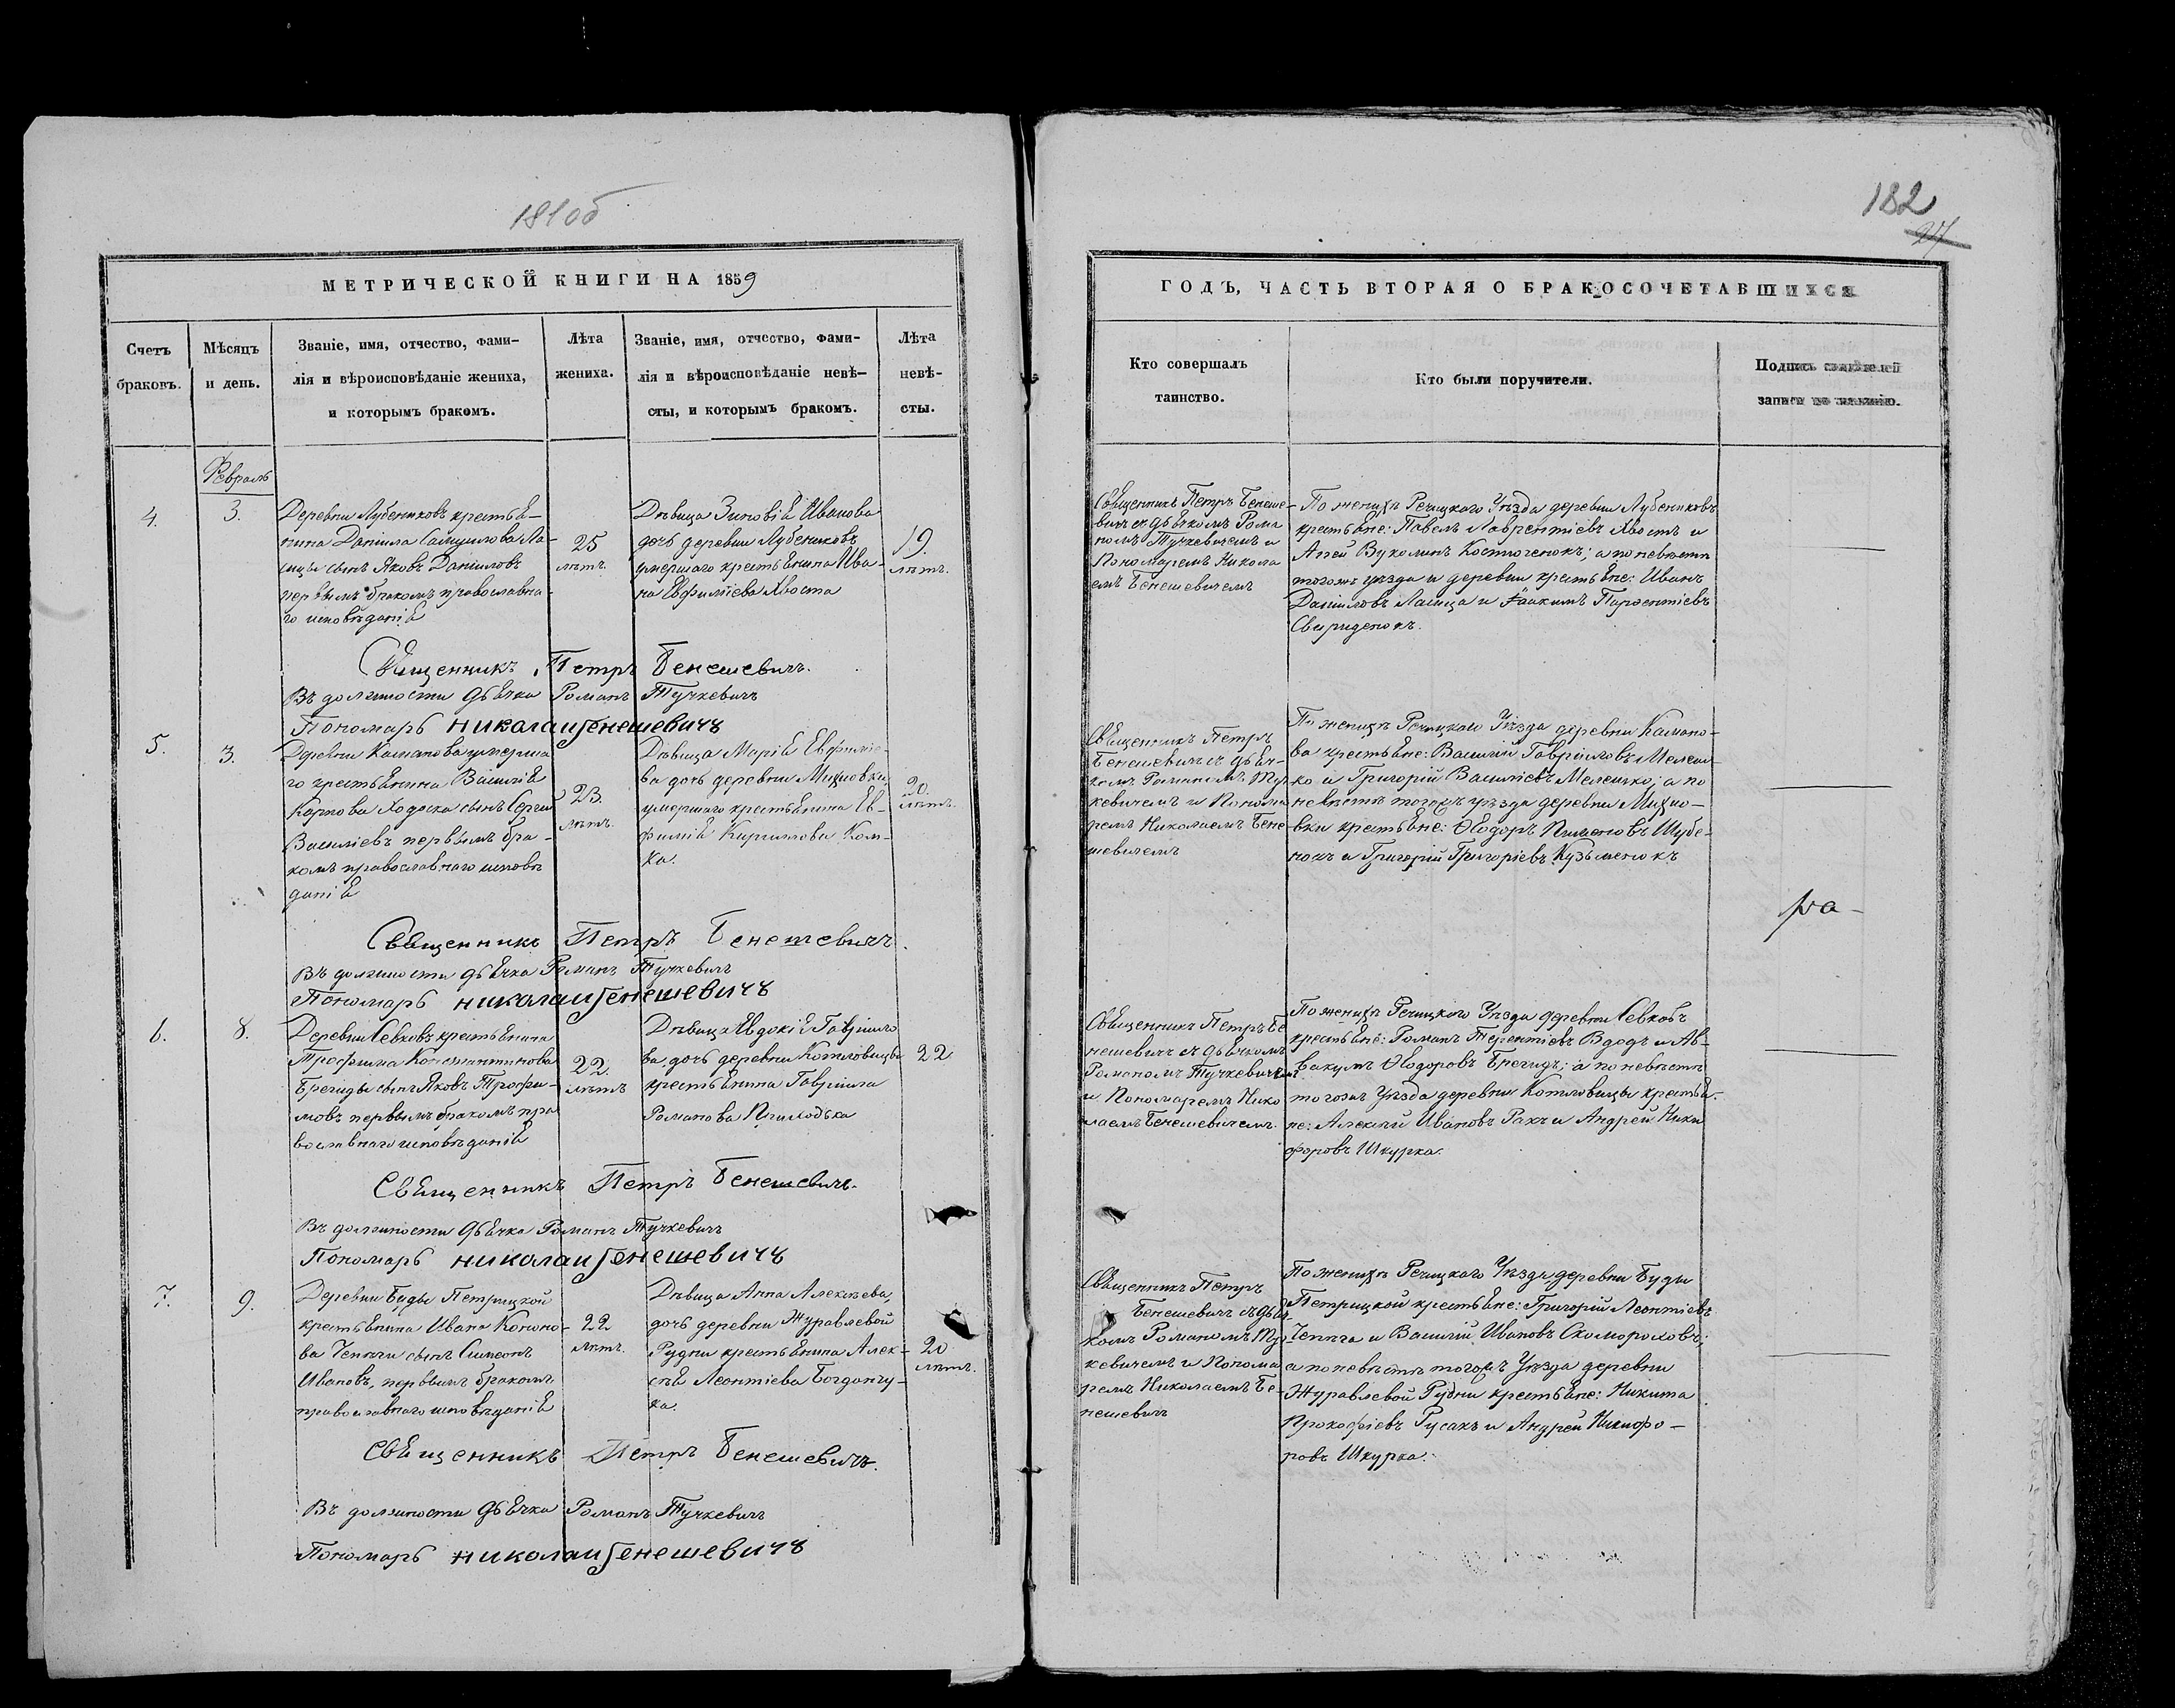 181об
МЕТРИЧЕСКОЙ КНИГИ НА 1859
Счетъ
браковъ.
Мѣсяцъ
и день.
Званіе, имя, отчество, фами-
лія и вѣроисповѣданіе жениха,
и которымъ бракомъ.
Лѣта
жениха.
Званіе, имя, отчество, фами-
лія и вѣроисповѣданіе невѣ-
сты, и которымъ бракомъ.
Лѣта
невѣ-
сты.
Февраль
4.
3.
Деревни Лубениковъ крестья-
нина Даніила Самуилова Ла-
сицы сынъ Яковъ Даніиловъ
первымъ бракомъ православна-
го исповѣданія
25
лѣтъ.
Дѣвица Зиновія Иванова
дочь деревни Лубениковъ
умершаго крестьянина Ива-
на Евфиміева Хвоста
19.
лѣтъ.
Священникъ Петръ Бенешевичъ.
Въ должности дьячка Романъ Тучкевичъ
Пономарь Николай Бенешевичъ
5.
3.
Деревни Каманова умерша-
го крестьянина Василія
Карпова Ходоска сынъ Сергій
Василіевъ первымъ бра-
комъ православнаго исповѣ
данія
23.
лѣтъ.
Дѣвица Марія Евфиміе-
ва дочь деревни Михновки
умершаго крестьянина Ев-
фимія Кириллова Ком-
ка.
20.
лѣтъ.
Священникъ Петръ Бенешевичъ.
Въ должности дьячка Романъ Тучкевичъ
Пономарь Николай Бенешевичъ
6.
8.
Деревни Севковъ крестьянина
Трофима Константинова
Брегиды сынъ Яковъ Трофи-
мовъ первымъ бракомъ пра
вославнаго исповѣданія
22.
лѣтъ
Дѣвица Евдокія Гавріило
ва дочь деревни Котловицы
крестьянина Гавріила
Романова Приходька
22
Священникъ Петръ Бенешевичъ.
Въ должности дьячка Романъ Тучкевичъ
Пономарь Николай Бенешевичъ
7.
9.
Деревни Буды Петрицкой
крестьянина Ивана Конono-
ва Чепяги сынъ Симеонъ
Ивановъ, первымъ бракомъ
православнаго исповѣданія
22
лѣтъ.
Дѣвица Анна Алексѣева,
дочь деревни Журавлевой
Рудни крестьянина Алек-
сѣя Леонтіева Богданчу-
ка.
20
лѣтъ.
Священникъ Петръ Бенешевичъ.
Въ должности дьячка Романъ Тучкевичъ
Пономарь Николай Бенешевичъ
182
27
ГОДЪ, ЧАСТЬ ВТОРАЯ О БРАКОСОЧЕТАВШИХСЯ
Кто совершалъ
таинство.
Кто были поручители.
Подпись свидѣтелей
записи по желанію.
Священникъ Петръ Бенеше-
вичъ съ дьячкомъ Рома
номъ Тучкевичемъ и
Пономаремъ Никола
емъ Бенешевичемъ
По женихѣ Речицкаго Уѣзда деревни Лубениковъ
крестьяне: Павелъ Лаврентіевъ Хвостъ и
Агей Вуколинъ Костюченокъ; а по невѣстѣ
тогожъ уѣзда и деревни крестьяне: Иванъ
Даніиловъ Ласица и Іоакимъ Парѳентіевъ
Свириденокъ.
Священникъ Петръ
Бенешевичъ съ дьяч-
комъ Романомъ Туч-
кевичемъ и Понома
ремъ Николаемъ Бене
шевичемъ
По женихѣ Речицкаго Уѣзда деревни Камано-
ва крестьяне: Василій Гавріиловъ Мелеш-
ко и Григорій Василіевъ Мелешко; а по
невѣстѣ тогожъ уѣзда деревни Михно-
вки крестьяне: Ѳеодоръ Пименовъ Шубе-
нокъ и Григорій Григоріевъ Кузьменокъ
ра-
Священникъ Петръ Бе
нешевичъ съ дьячкомъ
Романомъ Тучкевичемъ
и Пономаремъ Нико
лаемъ Бенешевичемъ.
По женихѣ Речицкаго Уѣзда деревни Севковъ
крестьяне: Романъ Терентіевъ Вдодъ и Ав-
вакумъ Ѳеодоровъ Брегидъ; а по невѣстѣ
тогожъ Уѣзда деревни Котловицы крестья-
не: Алексѣй Ивановъ Ракъ и Андрей Ники
форовъ Шкурка.
Священникъ Петръ
Бенешевичъ съ дьяч
комъ Романомъ Туч-
кевичемъ и Понома
ремъ Николаемъ Бе-
нешевичъ
По женихѣ Речицкаго Уѣзда деревни Буды
Петрицкой крестьяне: Григорій Леонтіевъ
Чепяга и Василій Ивановъ Скомороховъ;
а по невѣстѣ тогожъ Уѣзда деревни
Журавлевой Рудни крестьяне: Никита
Прокофіевъ Русакъ и Андрей Никифо-
ровъ Шкурка.